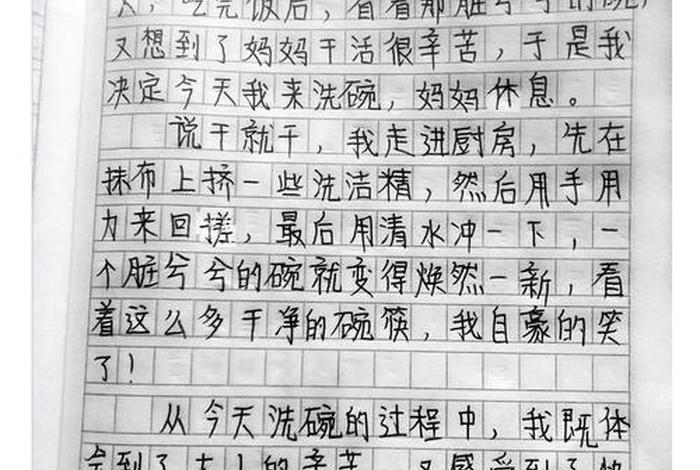 天，吃完饭后，看着那脏兮兮的碗，
又想到了妈妈干活很辛苦，于是我
决定今天我来洗碗，妈妈休息。
说干就干，我走进厨房，先在
抹布上挤一些洗洁精，然后用手用
力来回搓，最后用清水冲一下，一
个脏兮兮的碗就变得焕然一新，看
着这么多干净的碗筷，我自豪的笑
了！
从今天洗碗的过程中，我既体
会到了大人的辛苦，又感受到了快